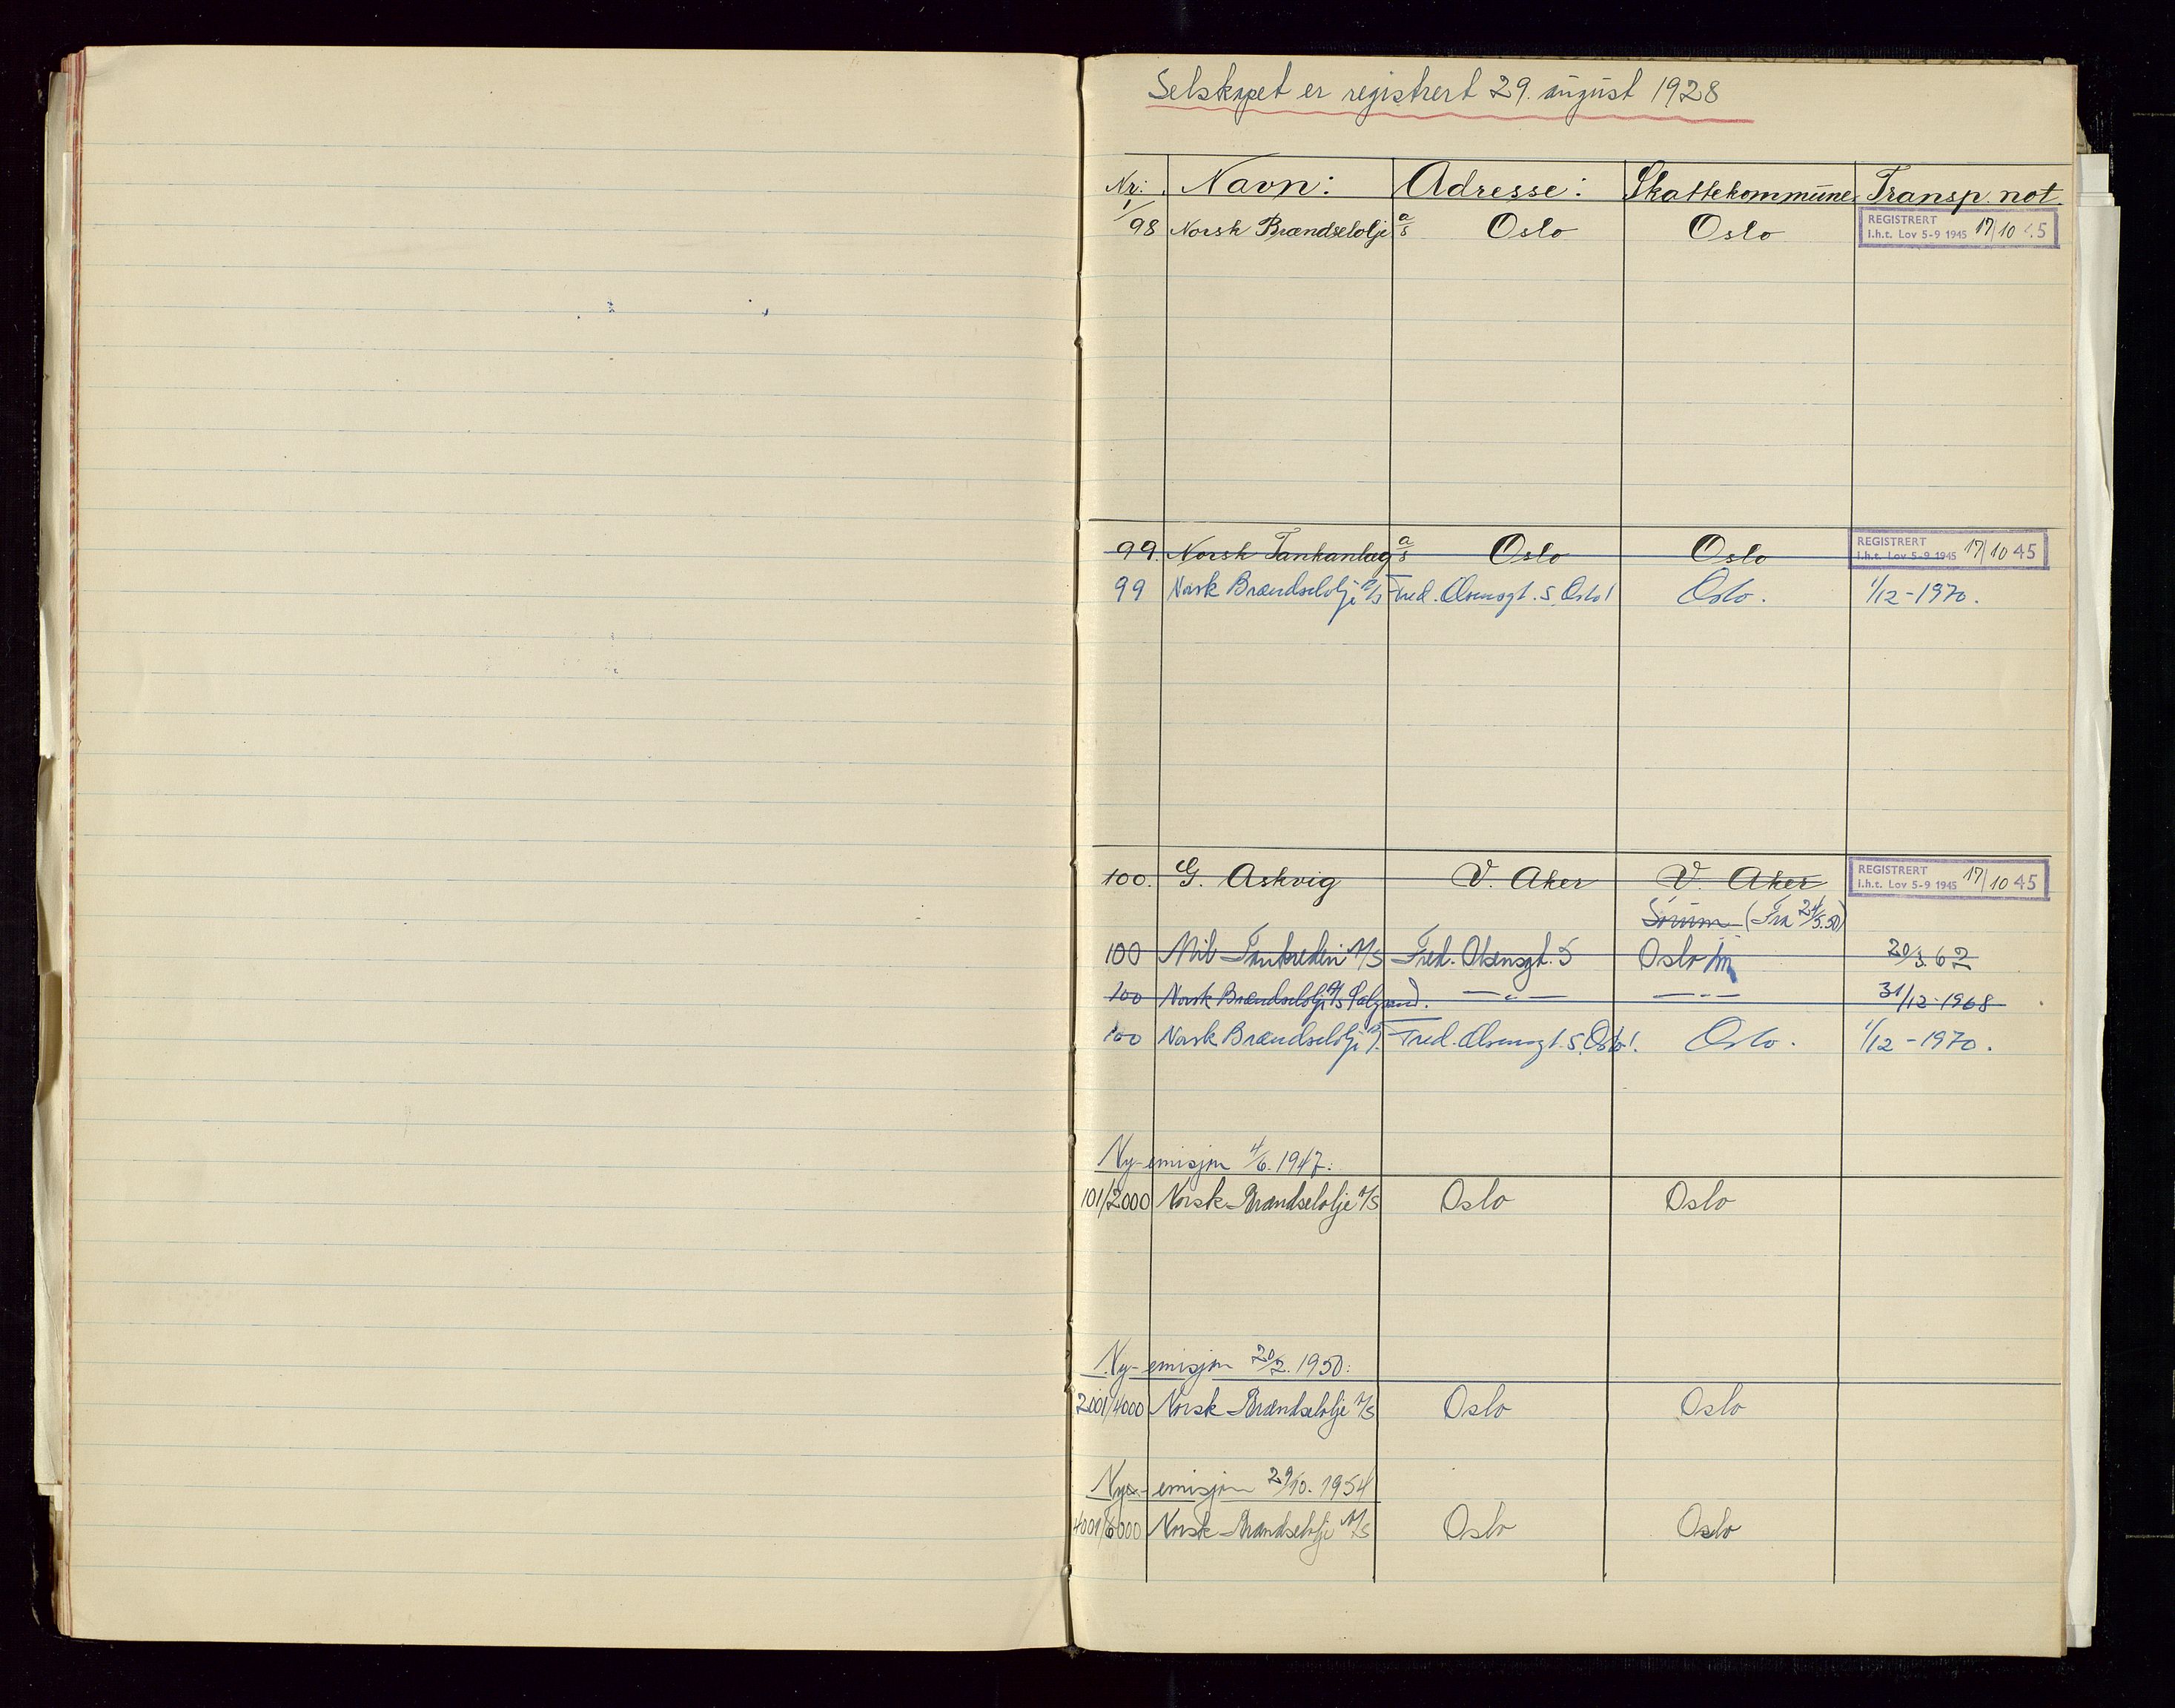 Selskapet er registrert 29. august 1928
Nr: Navn: Adresse: Skattekommune Transp. not.
1/98 Norsk Brændselolje a/s Oslo Oslo REGISTRERT
i.h.t. Lov 5-9 1945 17/10 45
99. Norsk Tankanlæg a/s Oslo Oslo REGISTRERT
i.h.t. Lov 5-9 1945 17/10 45
99 Norsk Brændselolje A/S Fred. Olsensgt. 5 Oslo 1 Oslo. 1/12-1970.
100. G. Askvig V. Aker V. Aker REGISTRERT
i.h.t. Lov 5-9 1945 17/10 45
Sørum (Fra 24/5.50)
100 Mil Tankrederi A/S Fred. Olsensgt. 5 Oslo 20/3.62
100 Norsk Brændselolje A/S —"— —"— 31/12-1968
100 Norsk Brændselolje A/S. Fred. Olsensgt. 5, Oslo 1. Oslo. 1/12-1970.
Ny-emisjon 4/6.1947:
101/2000 Norsk Brændselolje A/S Oslo Oslo
Ny-emisjon 20/2.1950:
2001/4000 Norsk Brændselolje A/S Oslo Oslo
Ny-emisjon 29/10.1954
4001/6000 Norsk Brændselolje A/S Oslo Oslo